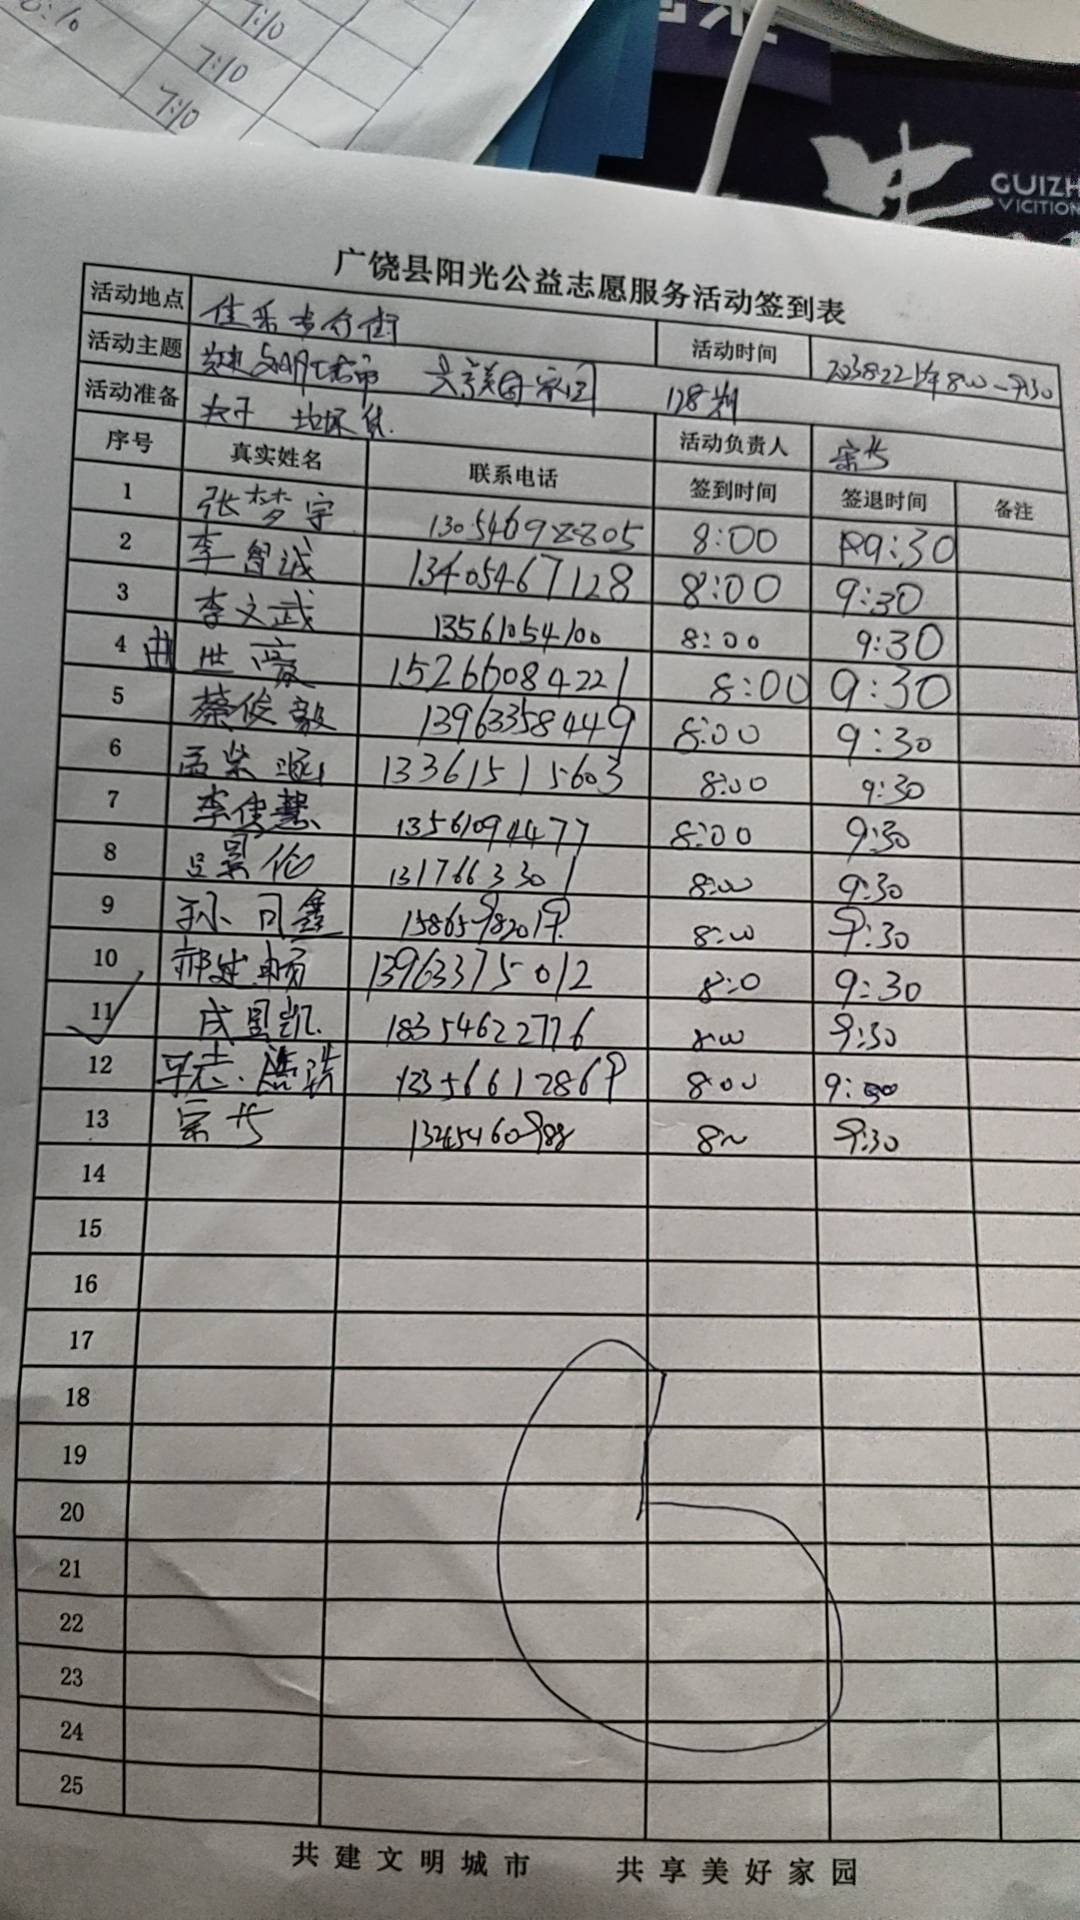 8:10 7:10
7:10
7:10
GUIZH
VICITION
广饶县阳光公益志愿服务活动签到表
活动地点 佳乐步行街 活动时间 2023.8.22 上午8:00-9:30
活动主题 共建文明城市 共享美好家园 128期
活动准备 夹子 垃圾袋 活动负责人 宗
序号 真实姓名 联系电话 签到时间 签退时间 备注
1 张梦宇 13054698805 8:00 9:30
2 李智诚 13405467128 8:00 9:30
3 李文武 13561054100 8:00 9:30
4 世豪 15266084221 8:00 9:30
5 蔡俊毅 13963358449 8:00 9:30
6 孟紫 13361515603 8:00 9:30
7 李佳慧 13561094477 8:00 9:30
8 吕景伦 13176633301 8:00 9:30
9 孙同鑫 15865982019 8:00 9:30
10 郝建顺 13963375012 8:0 9:30
11 成昱凯 18354622776 8:00 9:30
12 13356612869 8:00 9:30
13 宗 8:00 9:30
14
15
16
17
18
19
20
21
22
23
24
25
共建文明城市 共享美好家园